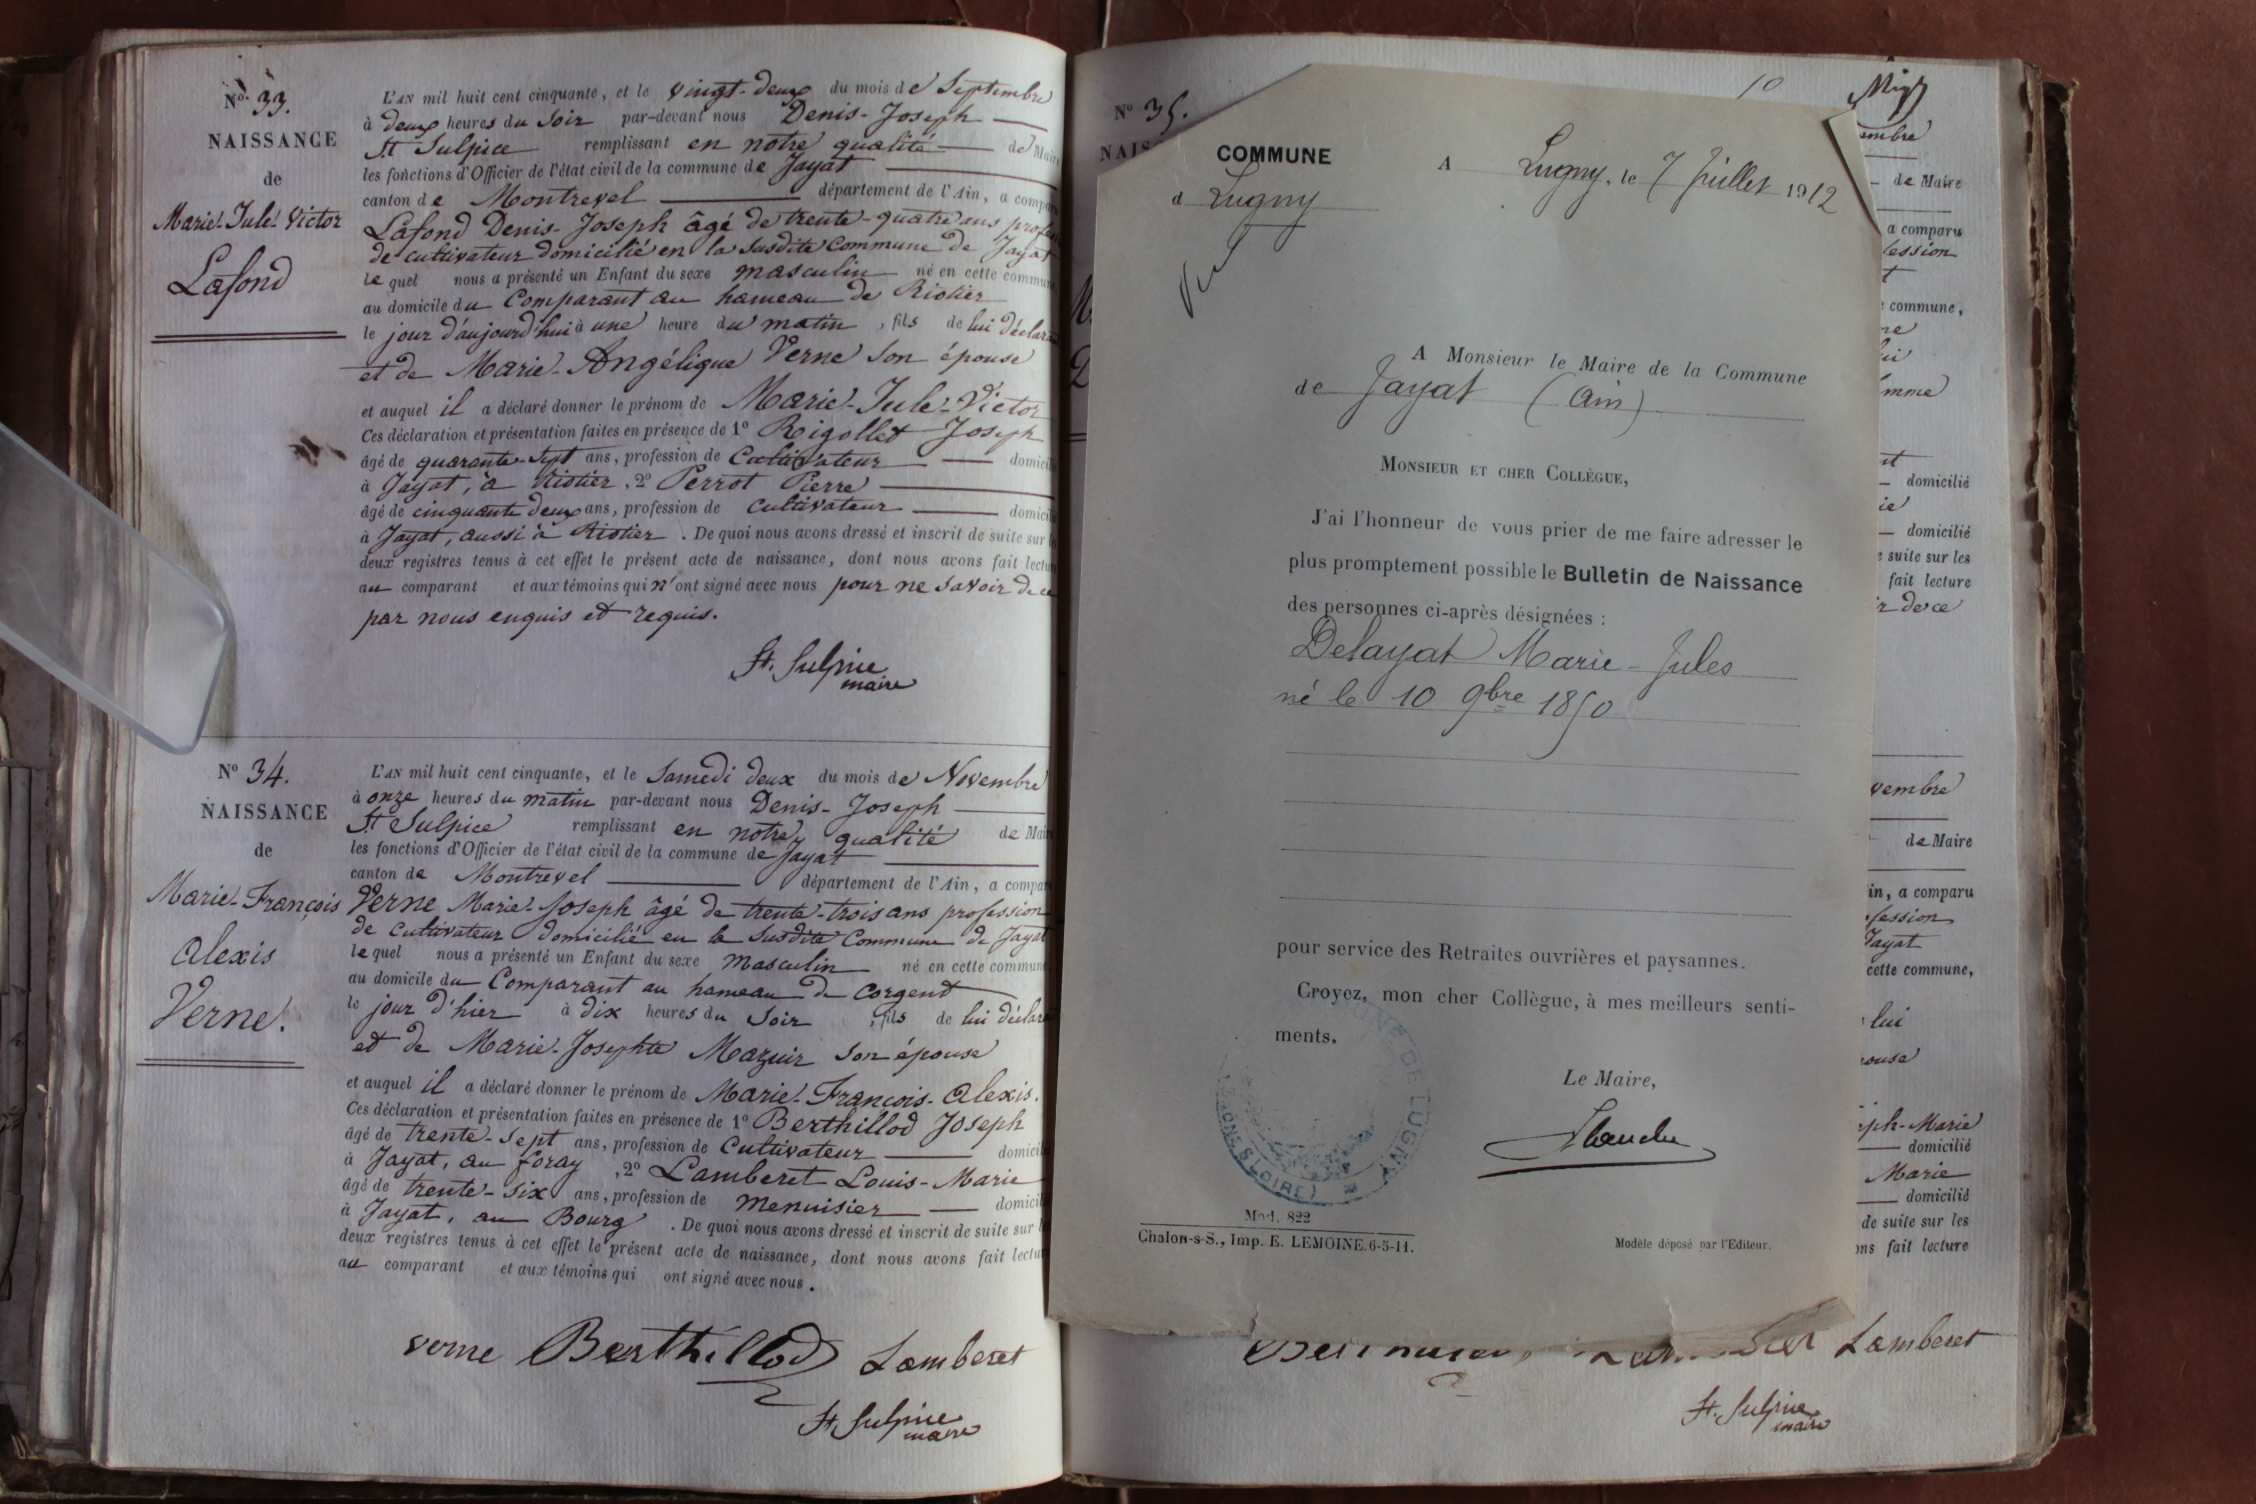 No 33.
NAISSANCE
de
Marie-Jule-Victor
Lafond
L'AN mil huit cent cinquante, et le vingt-deux du mois de Septembre
à deux heures du Soir par-devant nous Denis-Joseph
St Sulpice remplissant en notre qualité de Maire
les fonctions d'Officier de l'état civil de la commune de Jayat
canton de Montrevel département de l'Ain, a compa
Lafond Denis-Joseph âgé de trente-quatre ans profess
de cultivateur domicilié en la susdite Commune de Jayat
lequel nous a présenté un Enfant du sexe masculin né en cette commune
au domicile du Comparant au hameau de Riotier
le jour d'aujourd'hui à une heure du matin, fils de lui déclara
et de Marie-Angélique Verne son épouse
et auquel il a déclaré donner le prénom de Marie-Jule-Victor
Ces déclaration et présentation faites en présence de 1o Rigollet Joseph
âgé de quarante-sept ans, profession de Cultivateur domicili
à Jayat, à Riotier, 2o Perrot Pierre
âgé de cinquante deux ans, profession de cultivateur domicili
à Jayat, aussi à Riotier. De quoi nous avons dressé et inscrit de suite sur les
deux registres tenus à cet effet le présent acte de naissance, dont nous avons fait lecture
au comparant et aux témoins qui n'ont signé avec nous pour ne savoir de ce
par nous enquis et requis.
St. Sulpice
maire
No 34.
NAISSANCE
de
Marie-François
Alexis
Verne.
L'AN mil huit cent cinquante, et le Samedi deux du mois de Novembre
à onze heures du matin par-devant nous Denis-Joseph
St Sulpice remplissant en notre qualité de Maire
les fonctions d'Officier de l'état civil de la commune de Jayat
canton de Montrevel département de l'Ain, a compar
Verne Marie-Joseph âgé de trente-trois ans profession
de cultivateur domicilié en la susdite Commune de Jayat
lequel nous a présenté un Enfant du sexe Masculin né en cette commune
au domicile du Comparant au hameau de Corgent
le jour d'hier à dix heures du Soir, fils de lui déclara
et de Marie-Josephte Mazuir son épouse
et auquel il a déclaré donner le prénom de Marie-François-Alexis.
Ces déclaration et présentation faites en présence de 1o Berthillod Joseph
âgé de trente-sept ans, profession de Cultivateur domicili
à Jayat, au foray, 2o Lamberet Louis-Marie
âgé de trente-six ans, profession de Menuisier domicili
à Jayat, au Bourg. De quoi nous avons dressé et inscrit de suite sur l
deux registres tenus à cet effet le présent acte de naissance, dont nous avons fait lectu
au comparant et aux témoins qui ont signé avec nous.
verne Berthillod Lamberet
St. Sulpice
maire
No 35.
NAIS
10
COMMUNE
d Lugny
A Lugny, le 7 Juillet 1912
A Monsieur le Maire de la Commune
de Jayat (Ain)
MONSIEUR ET CHER COLLÈGUE,
J'ai l'honneur de vous prier de me faire adresser le
plus promptement possible le Bulletin de Naissance
des personnes ci-après désignées :
Delayat Marie-Jules
né le 10 9bre 1850
pour service des Retraites ouvrières et paysannes.
Croyez, mon cher Collègue, à mes meilleurs senti-
ments.
Le Maire,
MAIRIE DE LUGNY
(SAONE-&-LOIRE)
Mod. 822
Chalon-s-S., Imp. E. LEMOINE.6-5-11.
Modèle déposé par l'Editeur.
embre
de Maire
a comparu
fession
t
commune,
lui
emme
domicilié
ie
domicilié
suite sur les
fait lecture
ir de ce
vembre
de Maire
in, a comparu
fession
Jayat
cette commune,
lui
pouse
eph-Marie
domicilié
Marie
domicilié
de suite sur les
ons fait lecture
Lamberet
St. Sulpice
maire